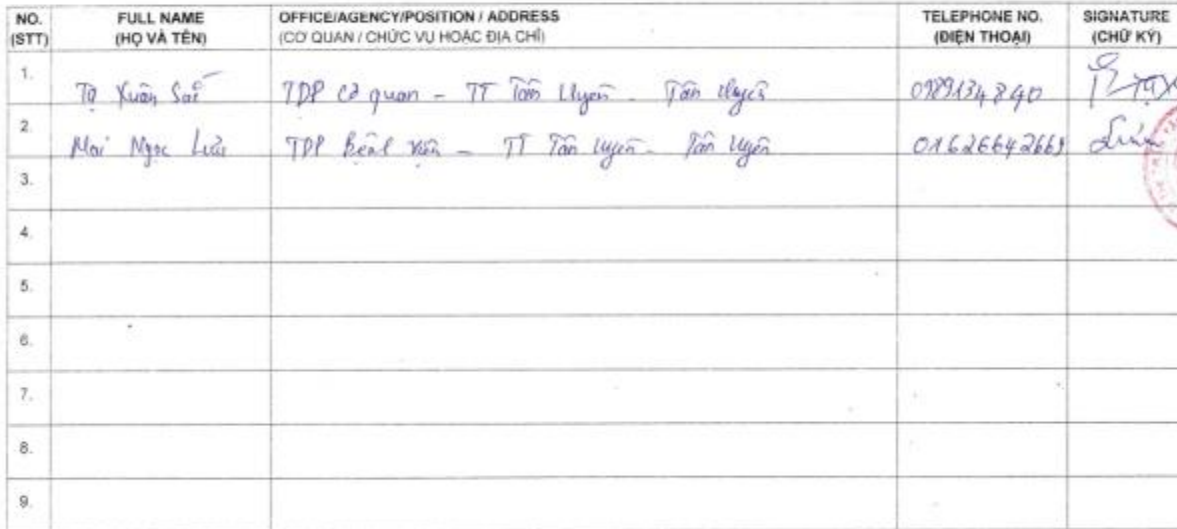 NO. (STT) FULL NAME (HỌ VÀ TÊN) OFFICE/AGENCY/POSITION / ADDRESS (CƠ QUAN / CHỨC VỤ HOẶC ĐỊA CHỈ) TELEPHONE NO. (ĐIỆN THOẠI) SIGNATURE (CHỮ KÝ)
1. Tạ Xuân TDP Cơ quan - TT Tân Uyên - Tân Uyên 0989134840
2. Mai Ngọc Lưu TDP Bệnh viện - TT Tân Uyên - Tân Uyên
3.
4.
5.
6.
7.
8.
9.